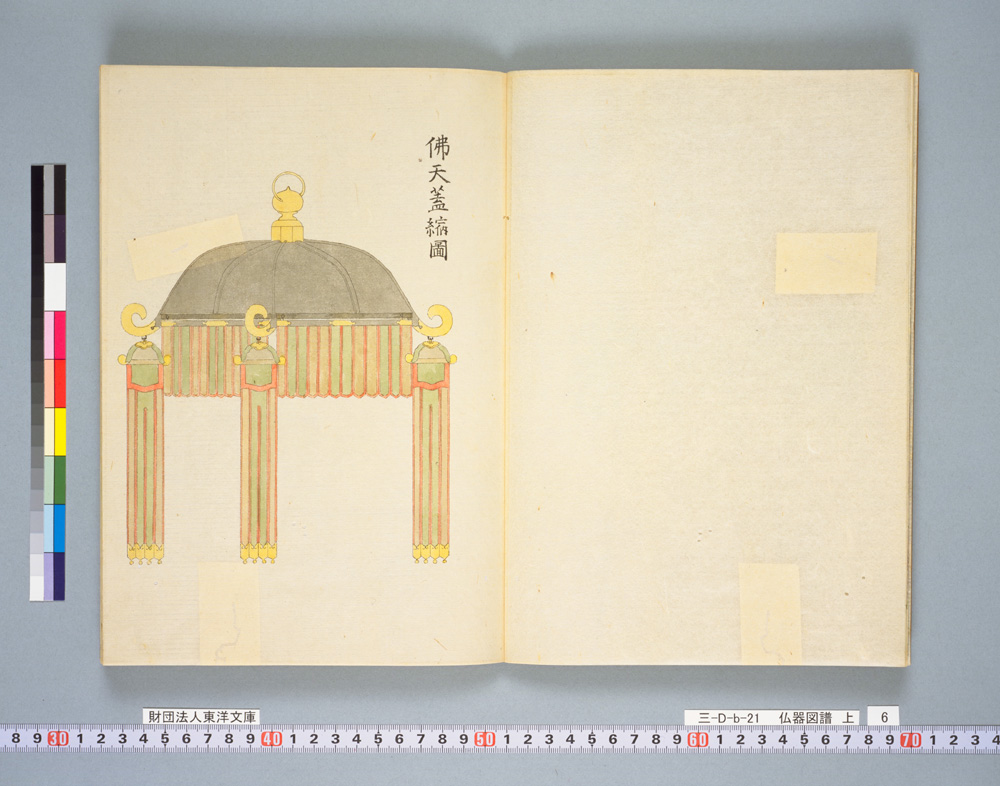 佛天蓋縮圖
財団法人東洋文庫
三-D-b-21 仏器図譜 上
6
8 9 30 1 2 3 4 5 6 7 8 9 40 1 2 3 4 5 6 7 8 9 50 1 2 3 4 5 6 7 8 9 60 1 2 3 4 5 6 7 8 9 70 1 2 3 4